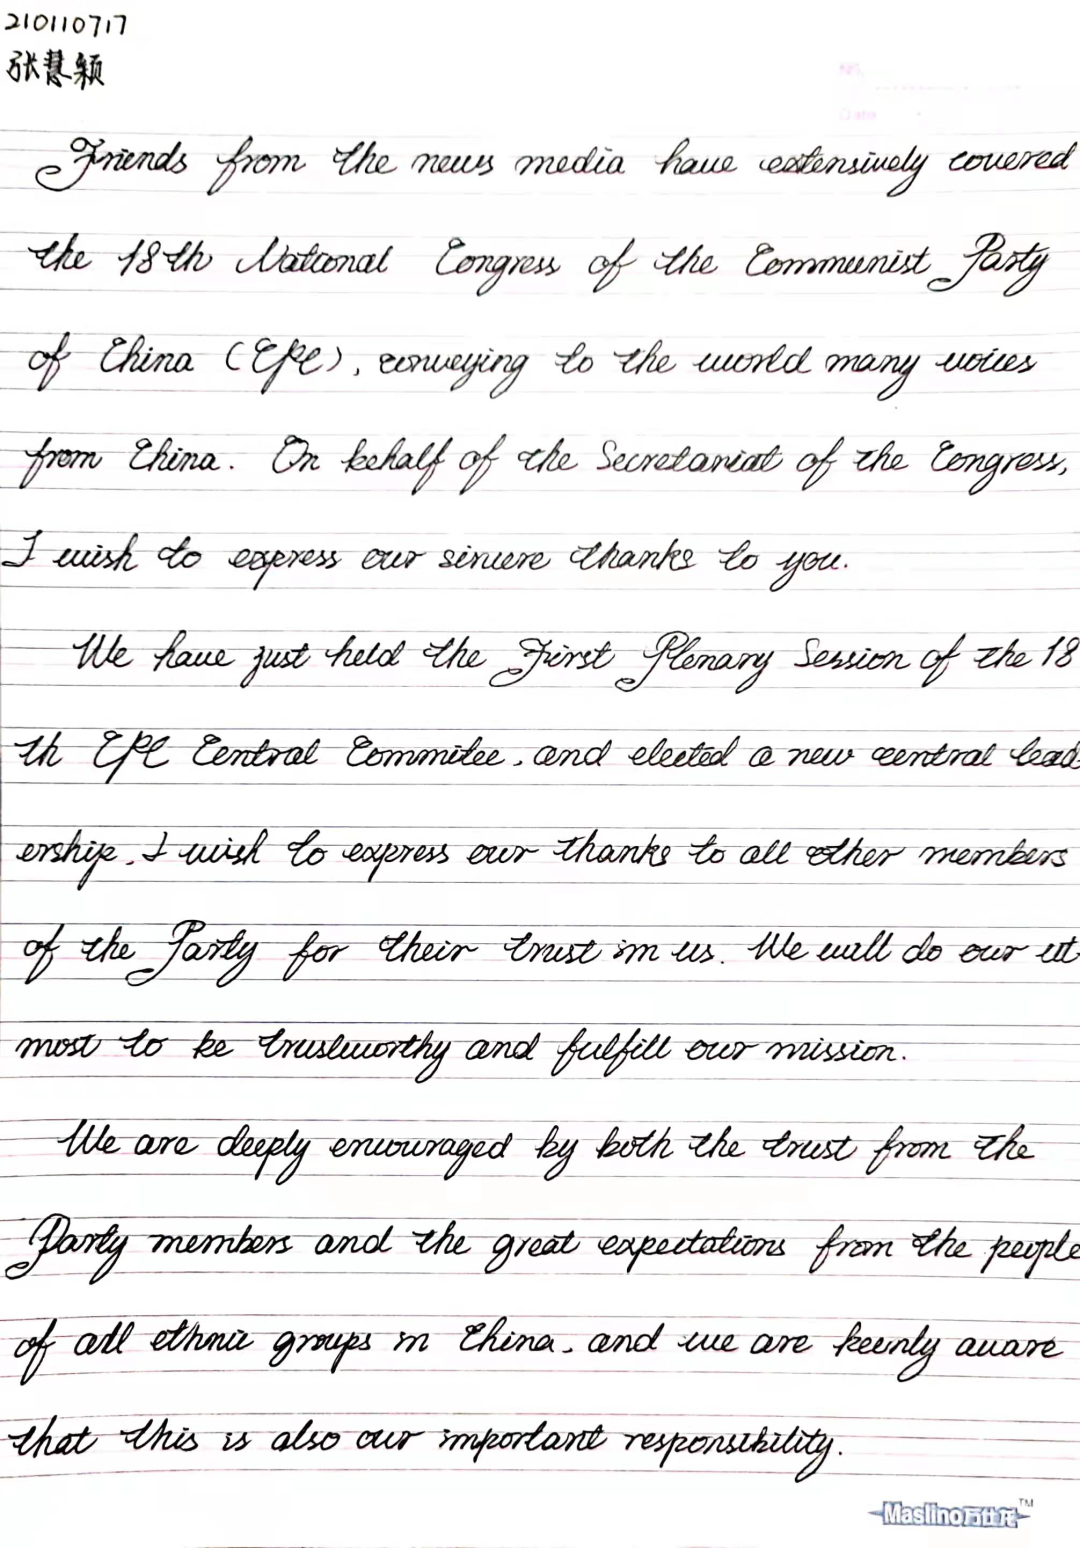 210110717
张慧颖
Friends from the news media have extensively covered
the 18th National Congress of the Communist Party
of China (CPC), conveying to the world many voices
from China. On behalf of the Secretariat of the Congress,
I wish to express our sincere thanks to you.
We have just held the First Plenary Session of the 18
th CPC Central Commitee, and elected a new central lead
ership. I wish to express our thanks to all other members
of the Party for their trust in us. We will do our ut
most to be trustworthy and fulfill our mission.
We are deeply encouraged by both the trust from the
Party members and the great expectations from the people
of all ethnic groups in China, and we are keenly aware
that this is also our important responsibility.
Maslino万仕龙™